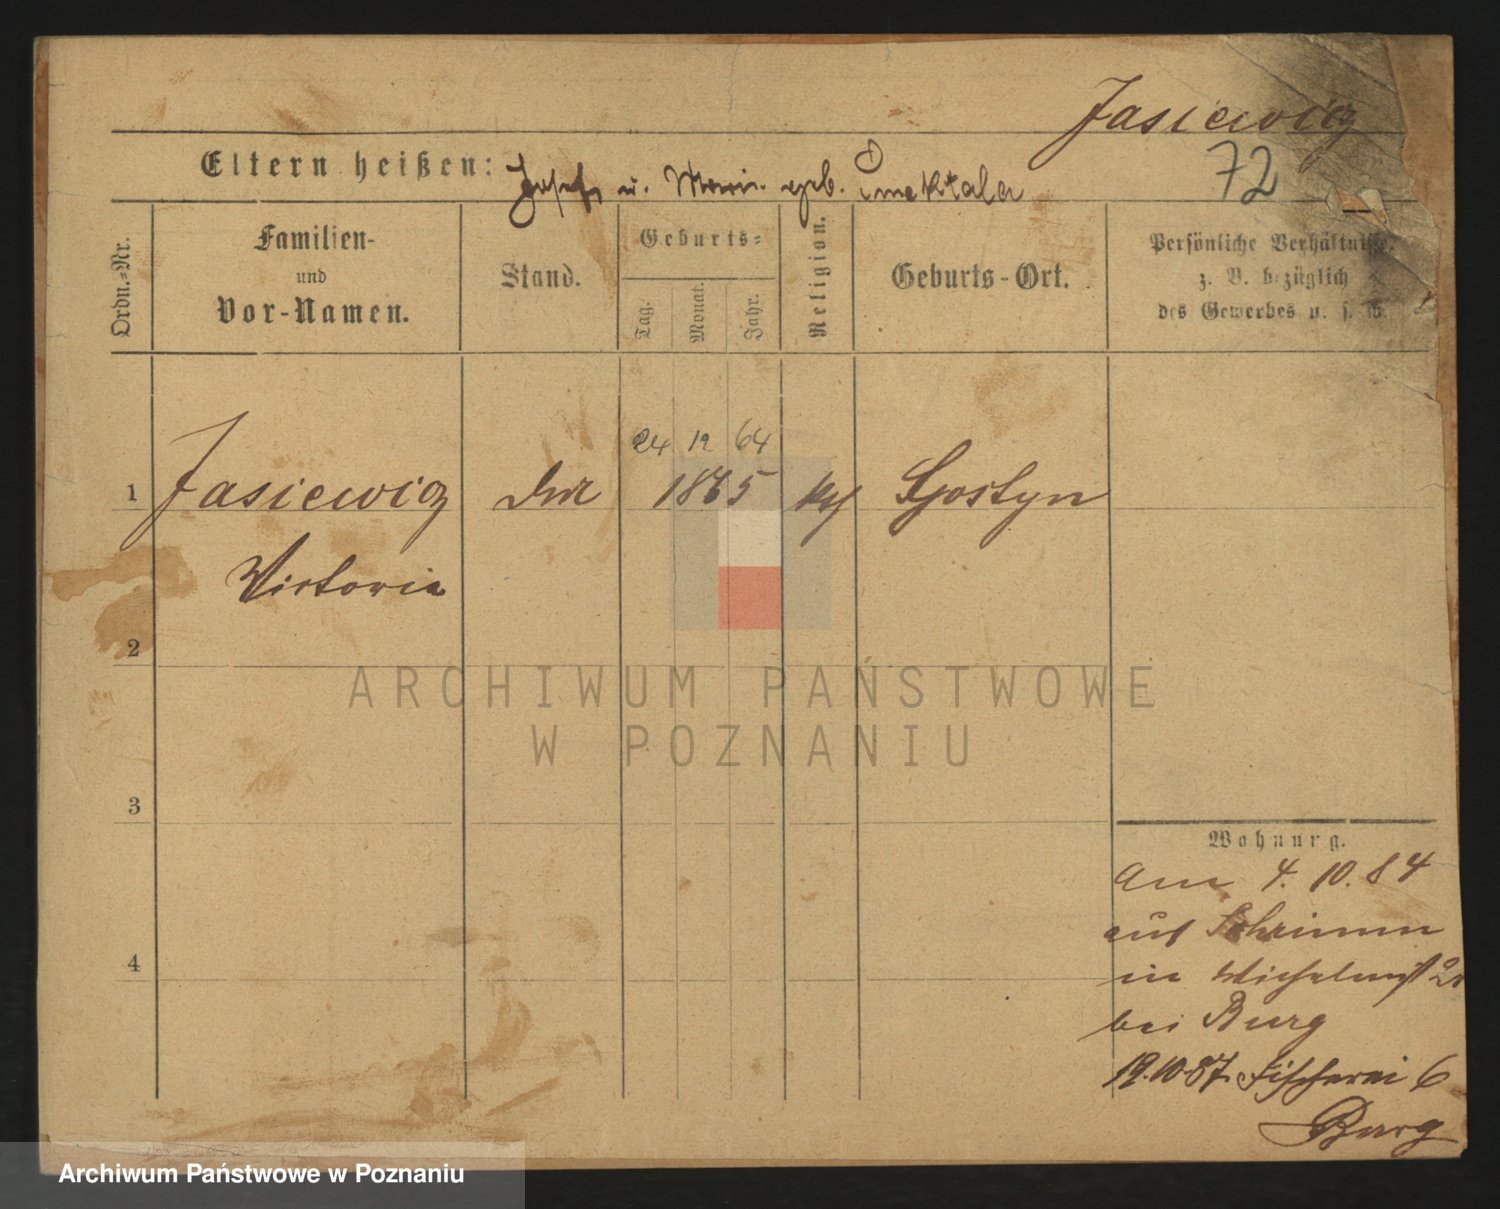 Jasiewicz
Eltern heißen: Joseph u. Marie geb.
72
Ordn.-Nr.
Familien-
und
Vor-Namen.
Stand.
Geburts-
Tag.
Monat.
Jahr.
Religion.
Geburts-Ort.
Persönliche Verhältnisse.
z. B. bezüglich
des Gewerbes u. s. w.
24 12 64
1 Jasiewicz 1865 kth Gostyn
Victoria
2
ARCHIWUM PAŃSTWOWE
W POZNANIU
3
4
Wohnung.
Am 4. 10. 84
aus Schrimm
in
bei Burg
19.10.87. Fischerei 6
Burg
Archiwum Państwowe w Poznaniu